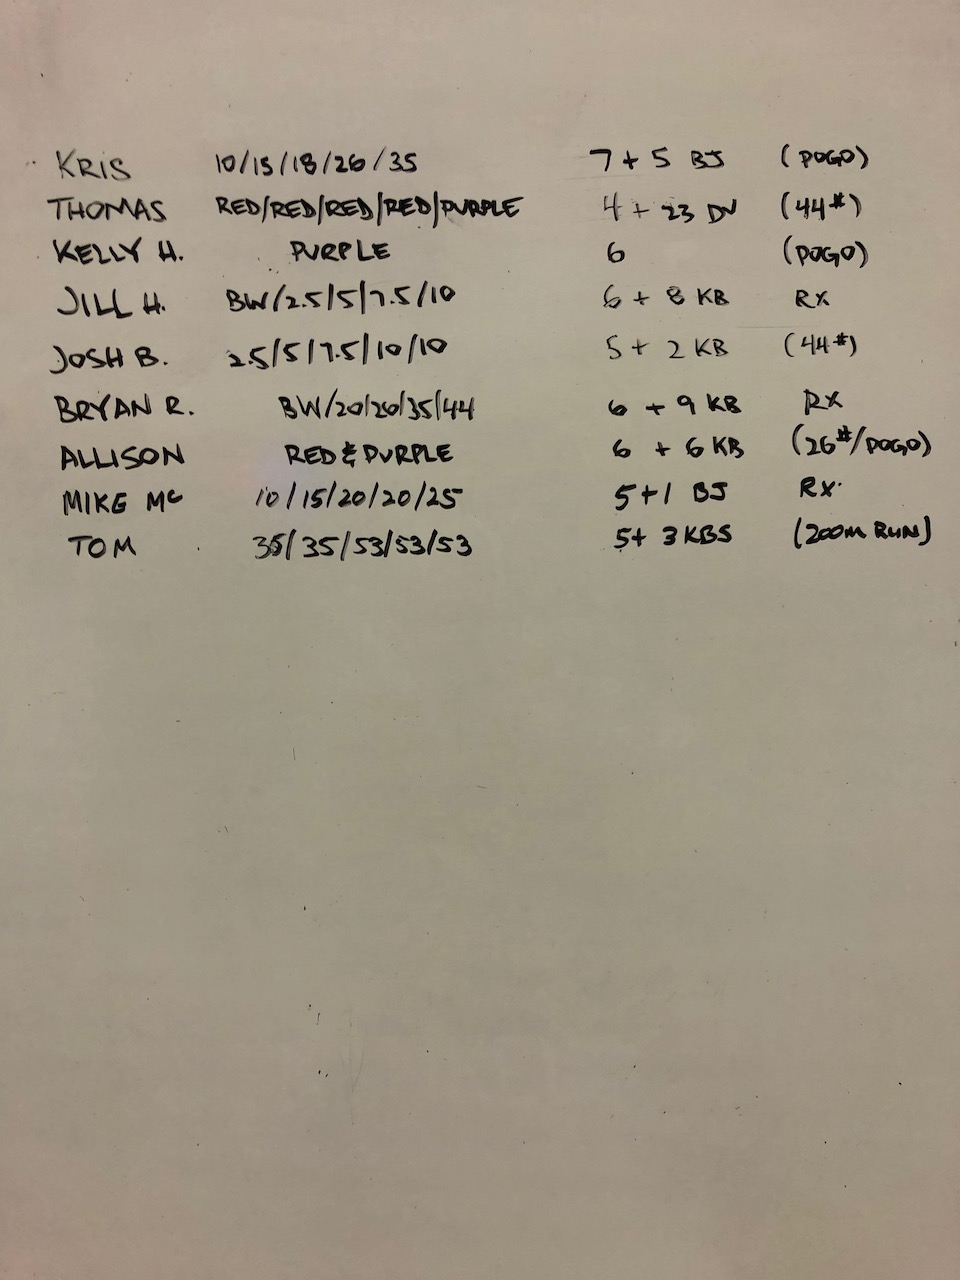 KRIS 10/15/18/26/35 7 + 5 BJ (POGO)
THOMAS RED/RED/RED/RED/PURPLE 4 + 23 DU (44#)
KELLY H. PURPLE 6 (POGO)
JILL H. BW/2.5/5/7.5/10 6 + 8 KB RX
JOSH B. 2.5/5/7.5/10/10 5 + 2 KB (44#)
BRYAN R. BW/20/20/35/44 6 + 9 KB RX
ALLISON RED & PURPLE 6 + 6 KB (26#/POGO)
MIKE MC 10/15/20/20/25 5+1 BJ RX
TOM 35/35/53/53/53 5+ 3 KBS (200M RUN)